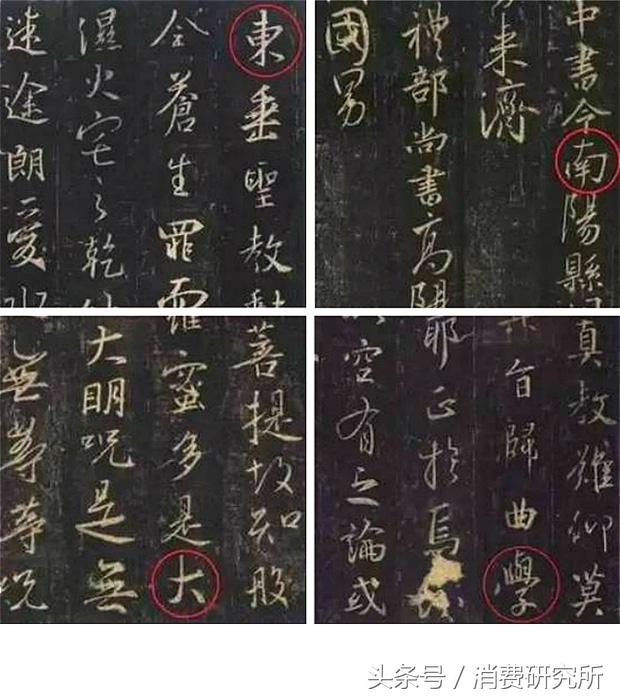 東垂聖教
全蒼生罪還
濕火宅之乾
迷途朗愛水
中書令南陽縣
來濟
禮部尚書高陽
國男
菩提故知般
羅蜜多是大
大明呪是無
無等等呪
真教難仰莫
其旨歸曲學
耶正於焉
空有之論或
头条号 / 消费研究所